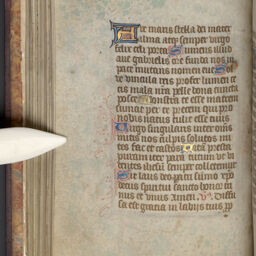 Ave maris stella dei mater
alma atqz semper virgo
felix celi porta Sumens illud
ave gabrielis ore funda nos in
pace mutans nomen eve Sol
ve vincla reis profer lumen ce
cis mala nra pelle bona cuncta
posce Monstra te esse matrem
sumat per te precem qui pro
nobis natus tulit esse tuus
Virgo singularis inter omnes
mitis nos culpis solutos mi
tes fac et castos Vitam presta
puram iter para tutum ut vi
dentes ihesum semper colletemur
Sit laus deo patri summo xpo
decus spiritui sancto honor in
nus et unus Amen. Diffu
sa est gracia in labijs tuis pp